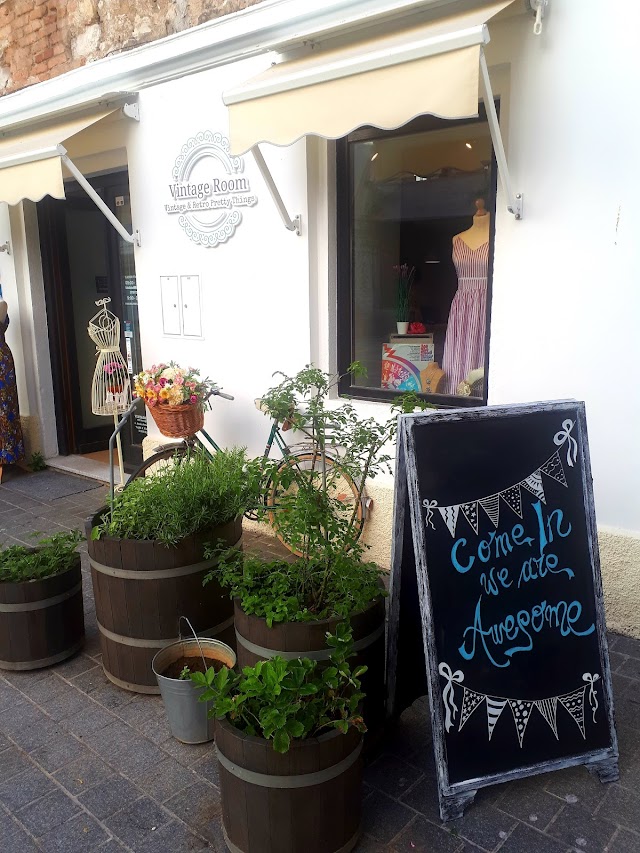 Vintage Room
Vintage & Retro Pretty Things
Come In
we are
Awesome